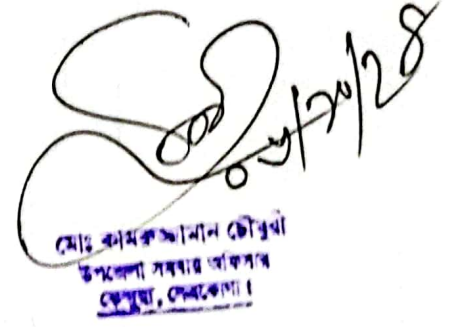 ০১/১০/২৪
মোঃ কামরুজ্জামান চৌধুরী
উপজেলা সমবায় অফিসার
কেন্দুয়া, নেত্রকোণা।